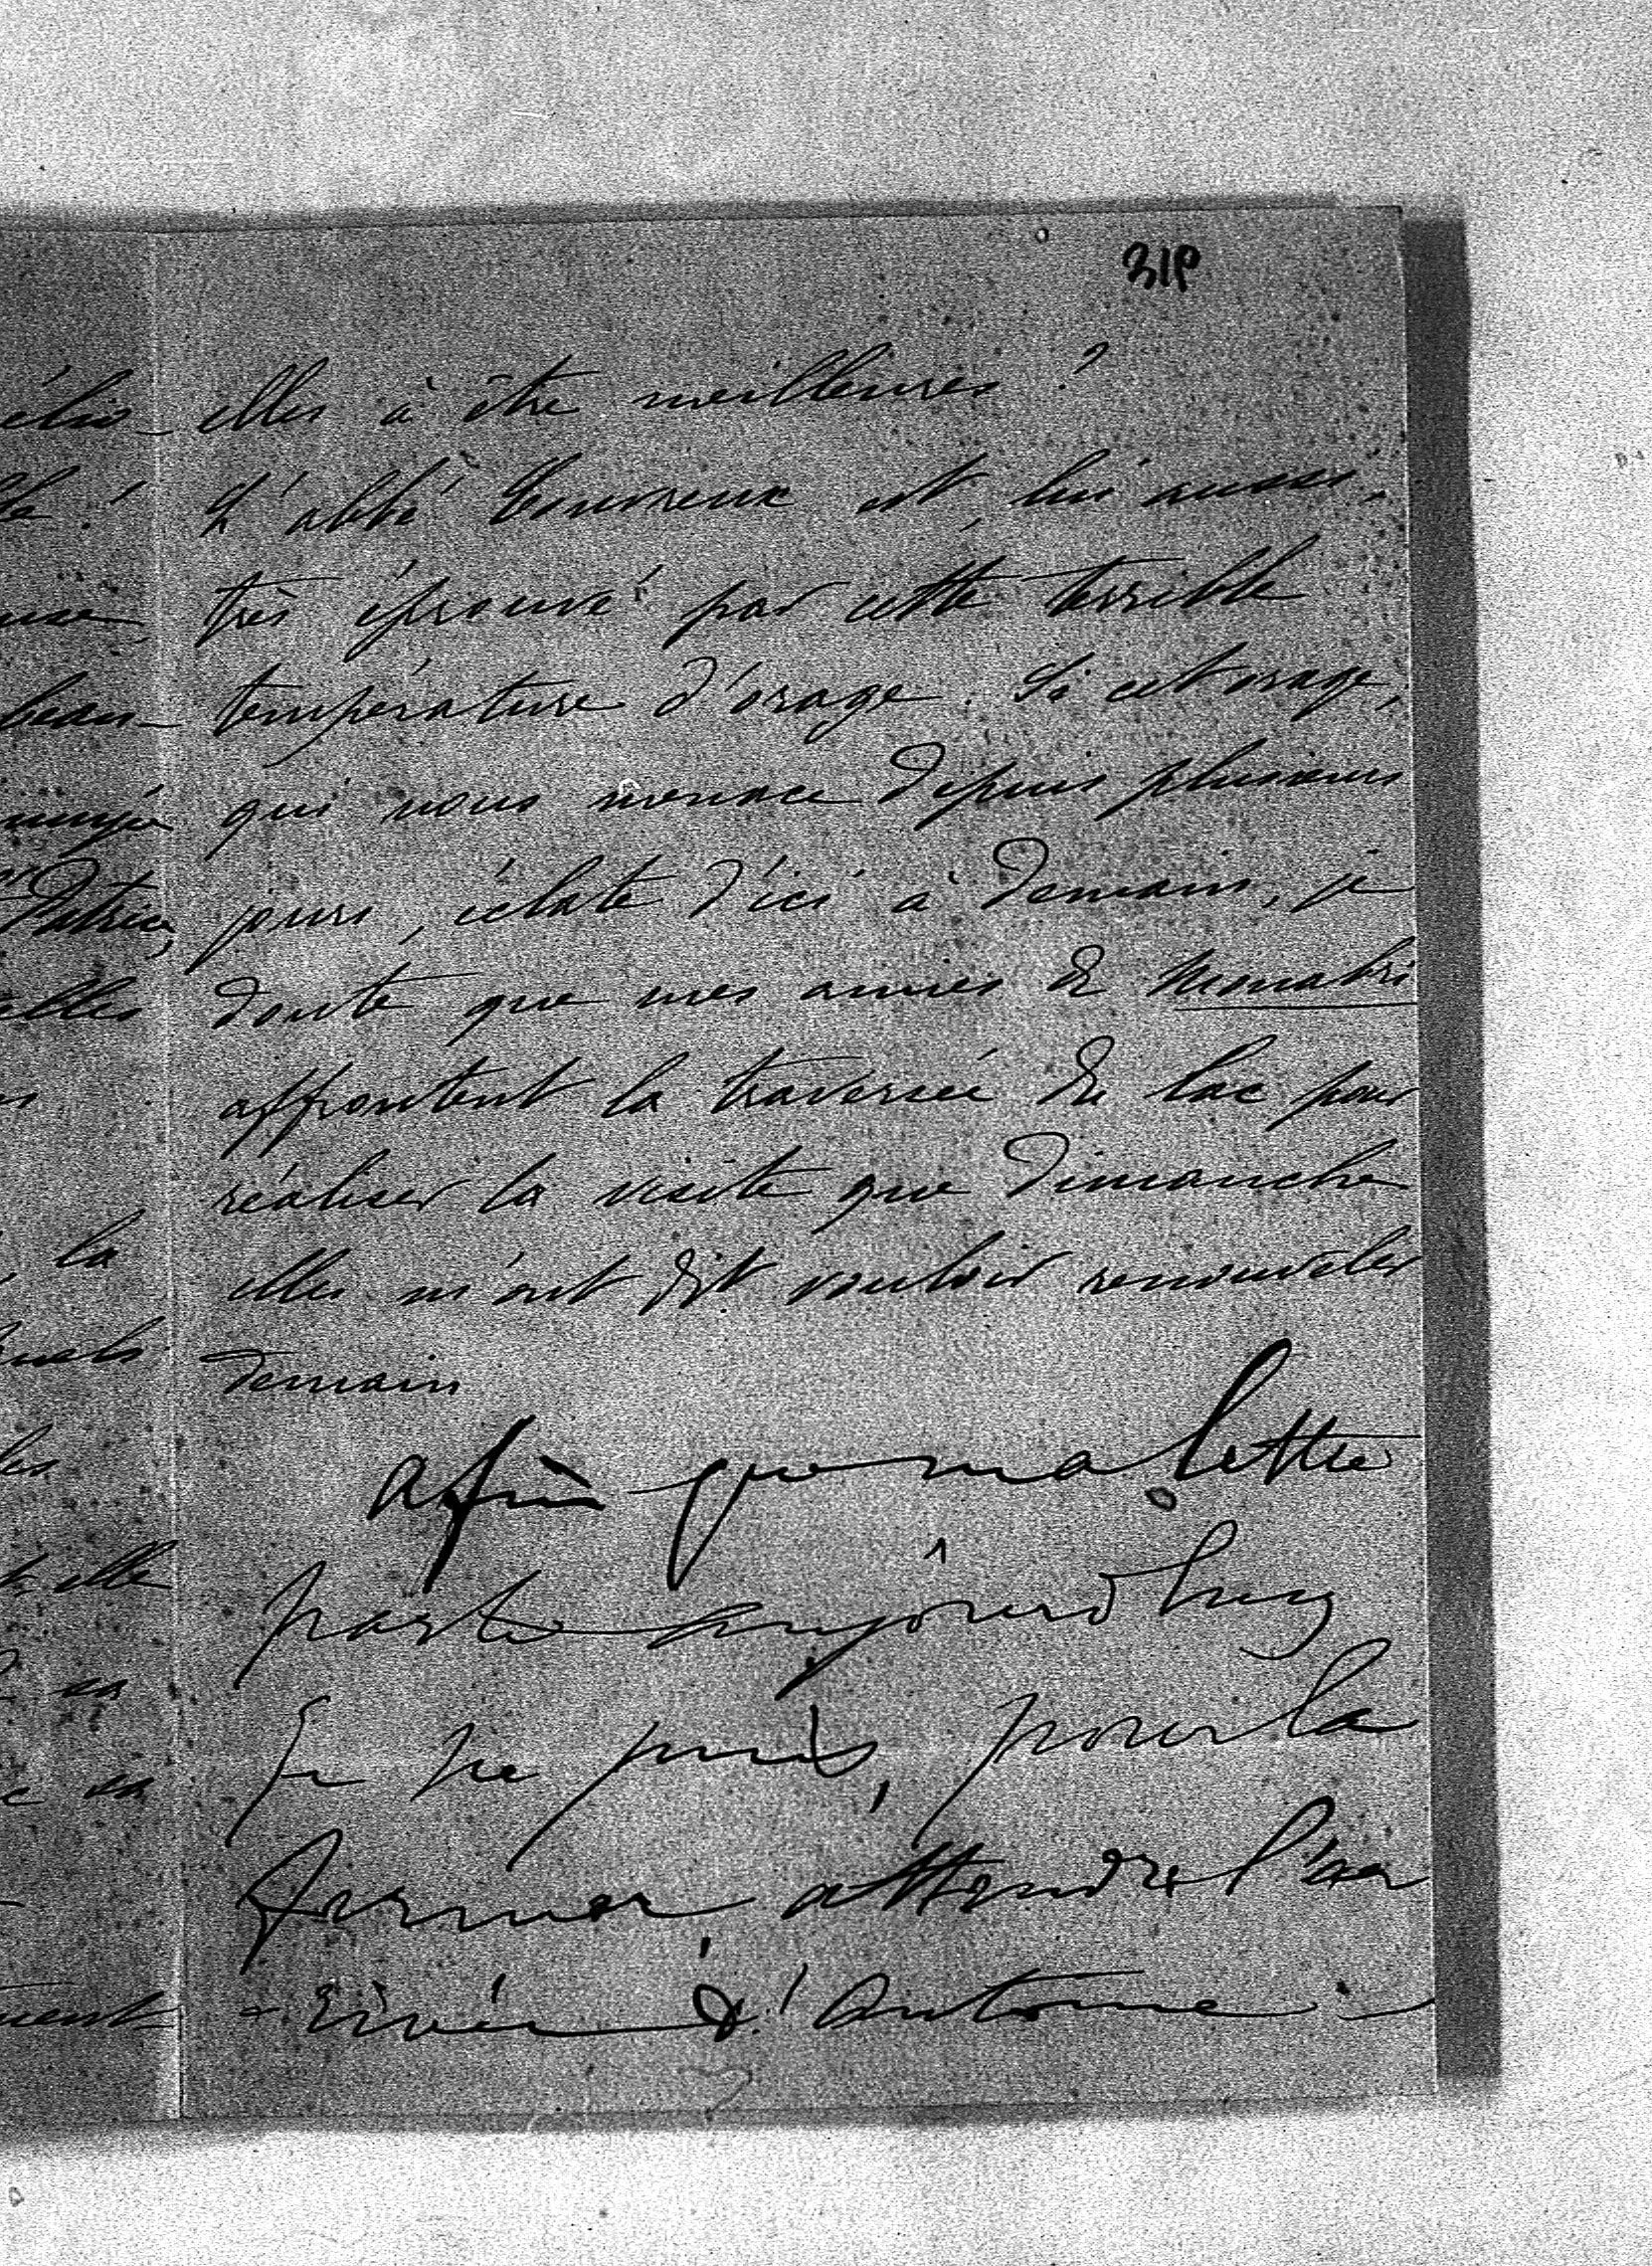 319
elles à être meilleures ?
L'abbé est, lui aussi,
très éprouvé par cette terrible
température d'orage. Si cet orage,
qui nous menace depuis plusieurs
jours, éclate d'ici à demain, je
doute que mes amies de Monabri
affrontent la traversée du lac pour
réaliser la visite que Dimanche
elles m'ont dit vouloir renouveler
demain
afin que ma lettre
parte aujourdhuy
Je ne puis, pour la
fermer attendre l'ar
-rivée d'Antoine
la
elle